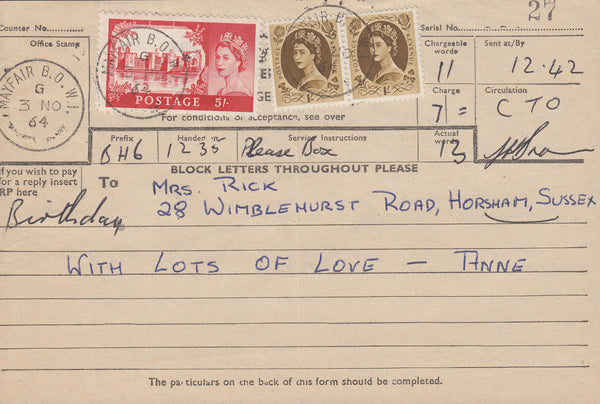 27
Counter No.
Serial No.
Office Stamp
Chargeable words
Sent at/By
11
12.42
MAYFAIR B.O. W.1.
G
3 NO
64
MAYFAIR B.O.
G
64
POSTAGE 5/-
Charge
Circulation
7/=
CTO
For conditions of acceptance, see over
Prefix
Handed in
Service Instructions
Actual words
BH6
1235
Please Box
13
BLOCK LETTERS THROUGHOUT PLEASE
If you wish to pay
for a reply insert
RP here
To
Mrs. RICK
Birthday
28 WIMBLEHURST ROAD, HORSHAM, SUSSEX
WITH LOTS OF LOVE — ANNE
The particulars on the back of this form should be completed.